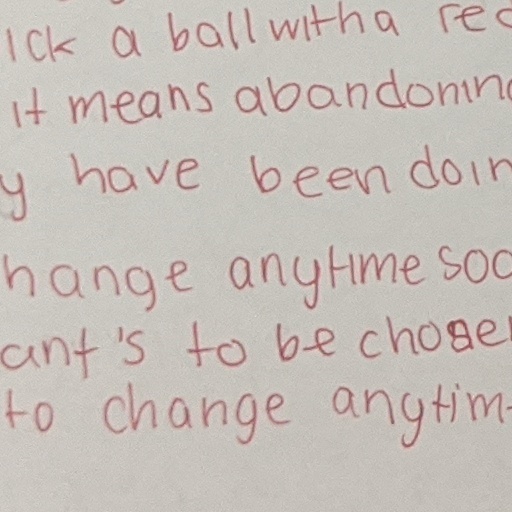 ick a ball with a rec
it means abandonin
y have been doin
hange anytime soo
ant's to be chosen
to change anytim